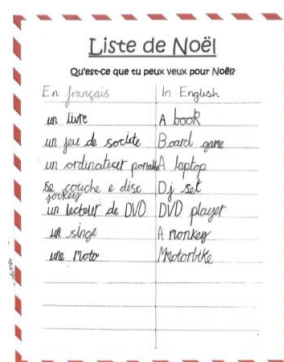 Liste de Noël
Qu'est-ce que tu peux veux pour Noël?
En français In English
un livre A book
un jeu de societe Board game
un ordinateur portable A laptop
se couche e disc Dj set
jockey
un lecteur de DVD DVD player
un singe A monkey
une moto Motorbike